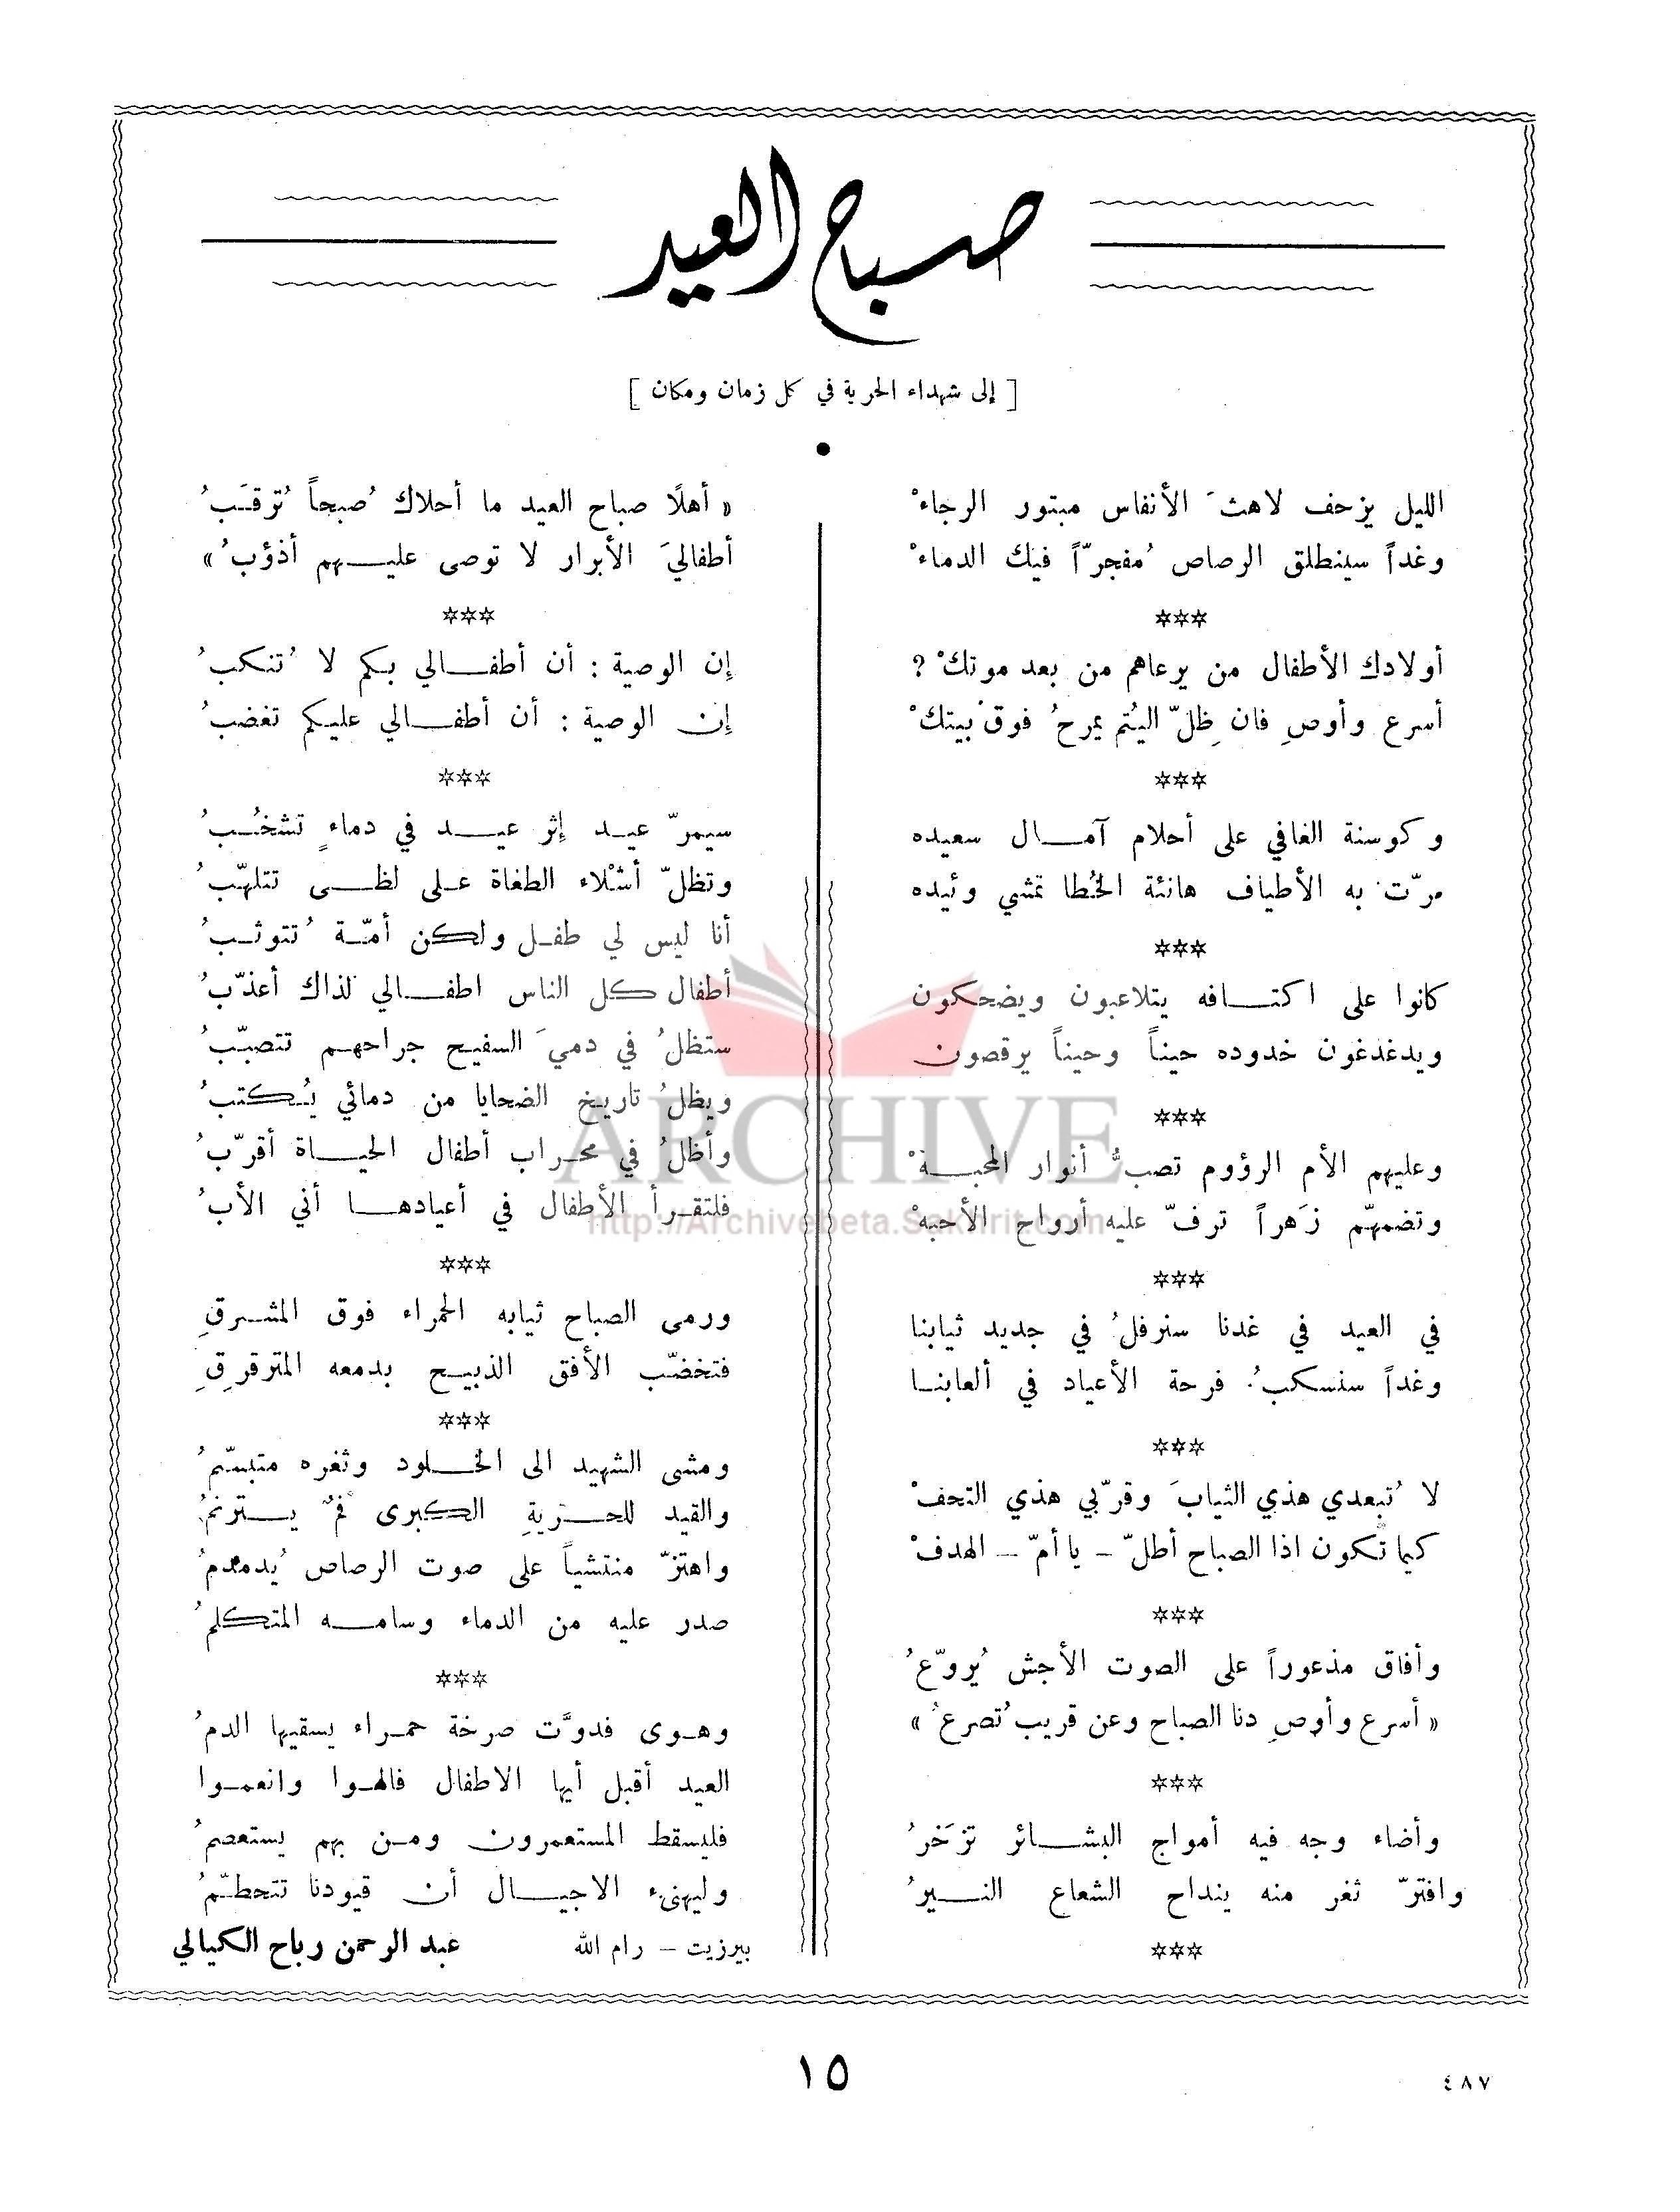 صباح العيد
[ إلى شهداء الحرية في كل زمان ومكان ]
الليل يزحف لاهثَ الأنفاس مبتور الرجاءْ
وغداً سينطلق الرصاص مُفجرّاً فيك الدماءْ
***
أولادك الأطفال من يرعاهم من بعد موتكْ ?
أسرع وأوصِ فان ظِلّ اليُتم يمرحُ فوق بيتكْ
***
وكوسنة الغافي على أحلام آمـــال سعيده
مرّت به الأطياف هانئة الخُطا تمشي وئيده
***
كانوا على اكتـــافه يتلاعبون ويضحكون
ويدغدغون خدوده حيناً وحيناً يرقصون
***
وعليهم الأم الرؤوم تصبُّ أنوار المحبـــةْ
وتضمهّم زَهراً ترفّ عليه أرواح الأحبهْ
***
في العيد في غدنا سنرفلُ في جديد ثيابنا
وغداً سنسكبُ فرحة الأعياد في ألعابنـا
***
لا تُبعدي هذي الثيابَ وقرّبي هذي التحفْ
كيما تكون اذا الصباح أطلّ – يا أمّ – الهدفْ
***
وأفاق مذعوراً على الصوت الأجش يُروّعُ
« أسرع وأوصِ دنا الصباح وعن قريب تُصرعُ »
***
وأضاء وجه فيه أمواج البشـــائر تزَخرُ
وافترّ ثغر منه ينداح الشعاع النـــيرُ
***
« أهلًا صباح العيد ما أحلاك صُبحاً تُوقـَبُ
أطفاليَ الأبرار لا توصى عليـــهم أذؤبُ »
***
إن الوصية : أن أطفـــالي بكم لا تُنكبُ
إن الوصية : أن أطفـــالي عليكم تغضبُ
***
سيمرّ عيـد إثر عيـــد في دماءٍ تشخُـبُ
وتظلّ أشْلاء الطغاة عـلى لظـــى تتلهّبُ
أنا ليس لي طفـل ولكن أمّـة تُتوثـبُ
أطفال كل الناس اطفـــالي لذاك أعذّبُ
ستظلُ في دميَ السفيح جراحهـم تتصبّبُ
ويظلُ تاريخ الضحايا من دمائي يُـكتبُ
وأظلُ في محراب أطفال الحيـــاة أقرّبُ
فلتقـرأ الأطفال في أعيادهـــا أني الأبُ
***
ورمى الصباح ثيابه الحمراء فوق المشـرقِ
فتخضّب الأفق الذبيـح بدمعه المترقرِقِ
***
ومشى الشهيد الى الخـــلود وثغره متبسّمُ
والقيد للحـــريةِ الكبرى فمٌ يـــترنمُ
واهتزّ منتشياً على صوت الرصاص يُدمدمُ
صدر عليه من الدماء وسامـــه المتكلمُ
***
وهـوى فدوَّت صرخة حمـراء يسقيها الدمُ
العيد أقبل أيها الاطفال فالهـوا وانعمـوا
فليسقط المستعمرون ومـن بهم يستعصمُ
وليهنىء الاجيـــال أن قيودنا تتحطـّمُ
بيرزيت – رام الله
عبد الرحمن رباح الكيالي
ARCHIVE
http://Archivebeta.Sakhrit.com
١٥
٤٨٧